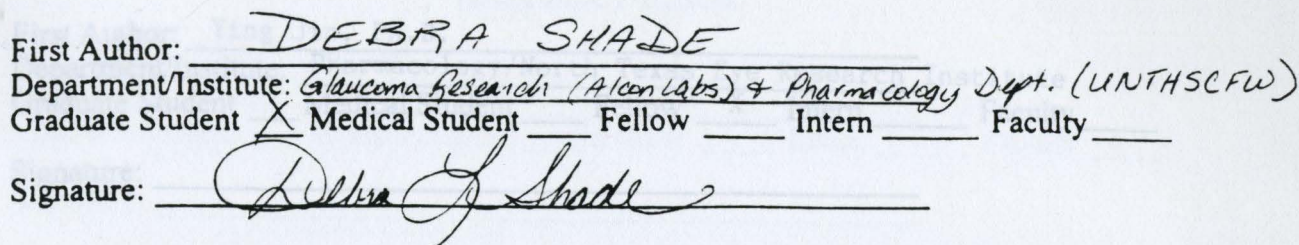 First Author: DEBRA SHADE
Department/Institute: Glaucoma Research (Alcon Labs) & Pharmacology Dept. (UNTHSCFW)
Graduate Student X Medical Student ___ Fellow ___ Intern ___ Faculty ___
Signature: Debra L Shade